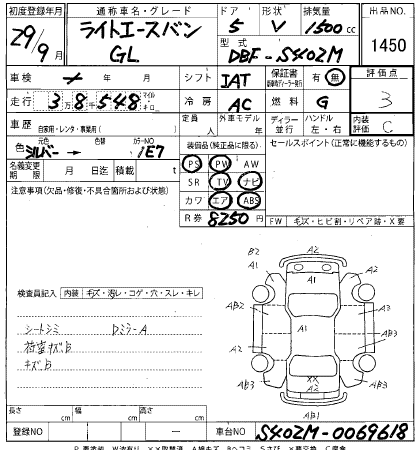 初度登録年月 通称車名・グレード ドア 形状 排気量 出品NO.
29/9月 ライトエースバン GL 5 V 1500 cc 1450
型式 DBF-S402M
車検 年 月 シフト IAT 保証書 有 無 評価点 3
走行 3万8千548 マイル キロ 冷房 AC 燃料 G 内装評価 C
車歴 自家用・レンタ・事業用( ) 定員 人 外車モデル 年 ディーラー 並行 ハンドル 左・右
色 元色 シルバー → 色替 カラーNO 1E7 装備品(純正品に限る) セールスポイント(正常に機能するもの)
名義変更期限 月 日迄 積載 t PS PW AW
注意事項(欠品・修復・不具合箇所および状態) SR TV ナビ
カワ エアB ABS
R券 8250 円 FW キズ・ヒビ割・リペア跡・X要
検査員記入 内装 キズ・汚レ・コゲ・穴・スレ・キレ
シートシミ DミラーA
荷室キズB
キズB
B2 A2
A1 A2
A1
AB2 A3
A2 A2
AB3 XX A2 AB3
A2
AB1
長さ cm 幅 cm 高さ cm
登録NO 車台NO S402M-0069618